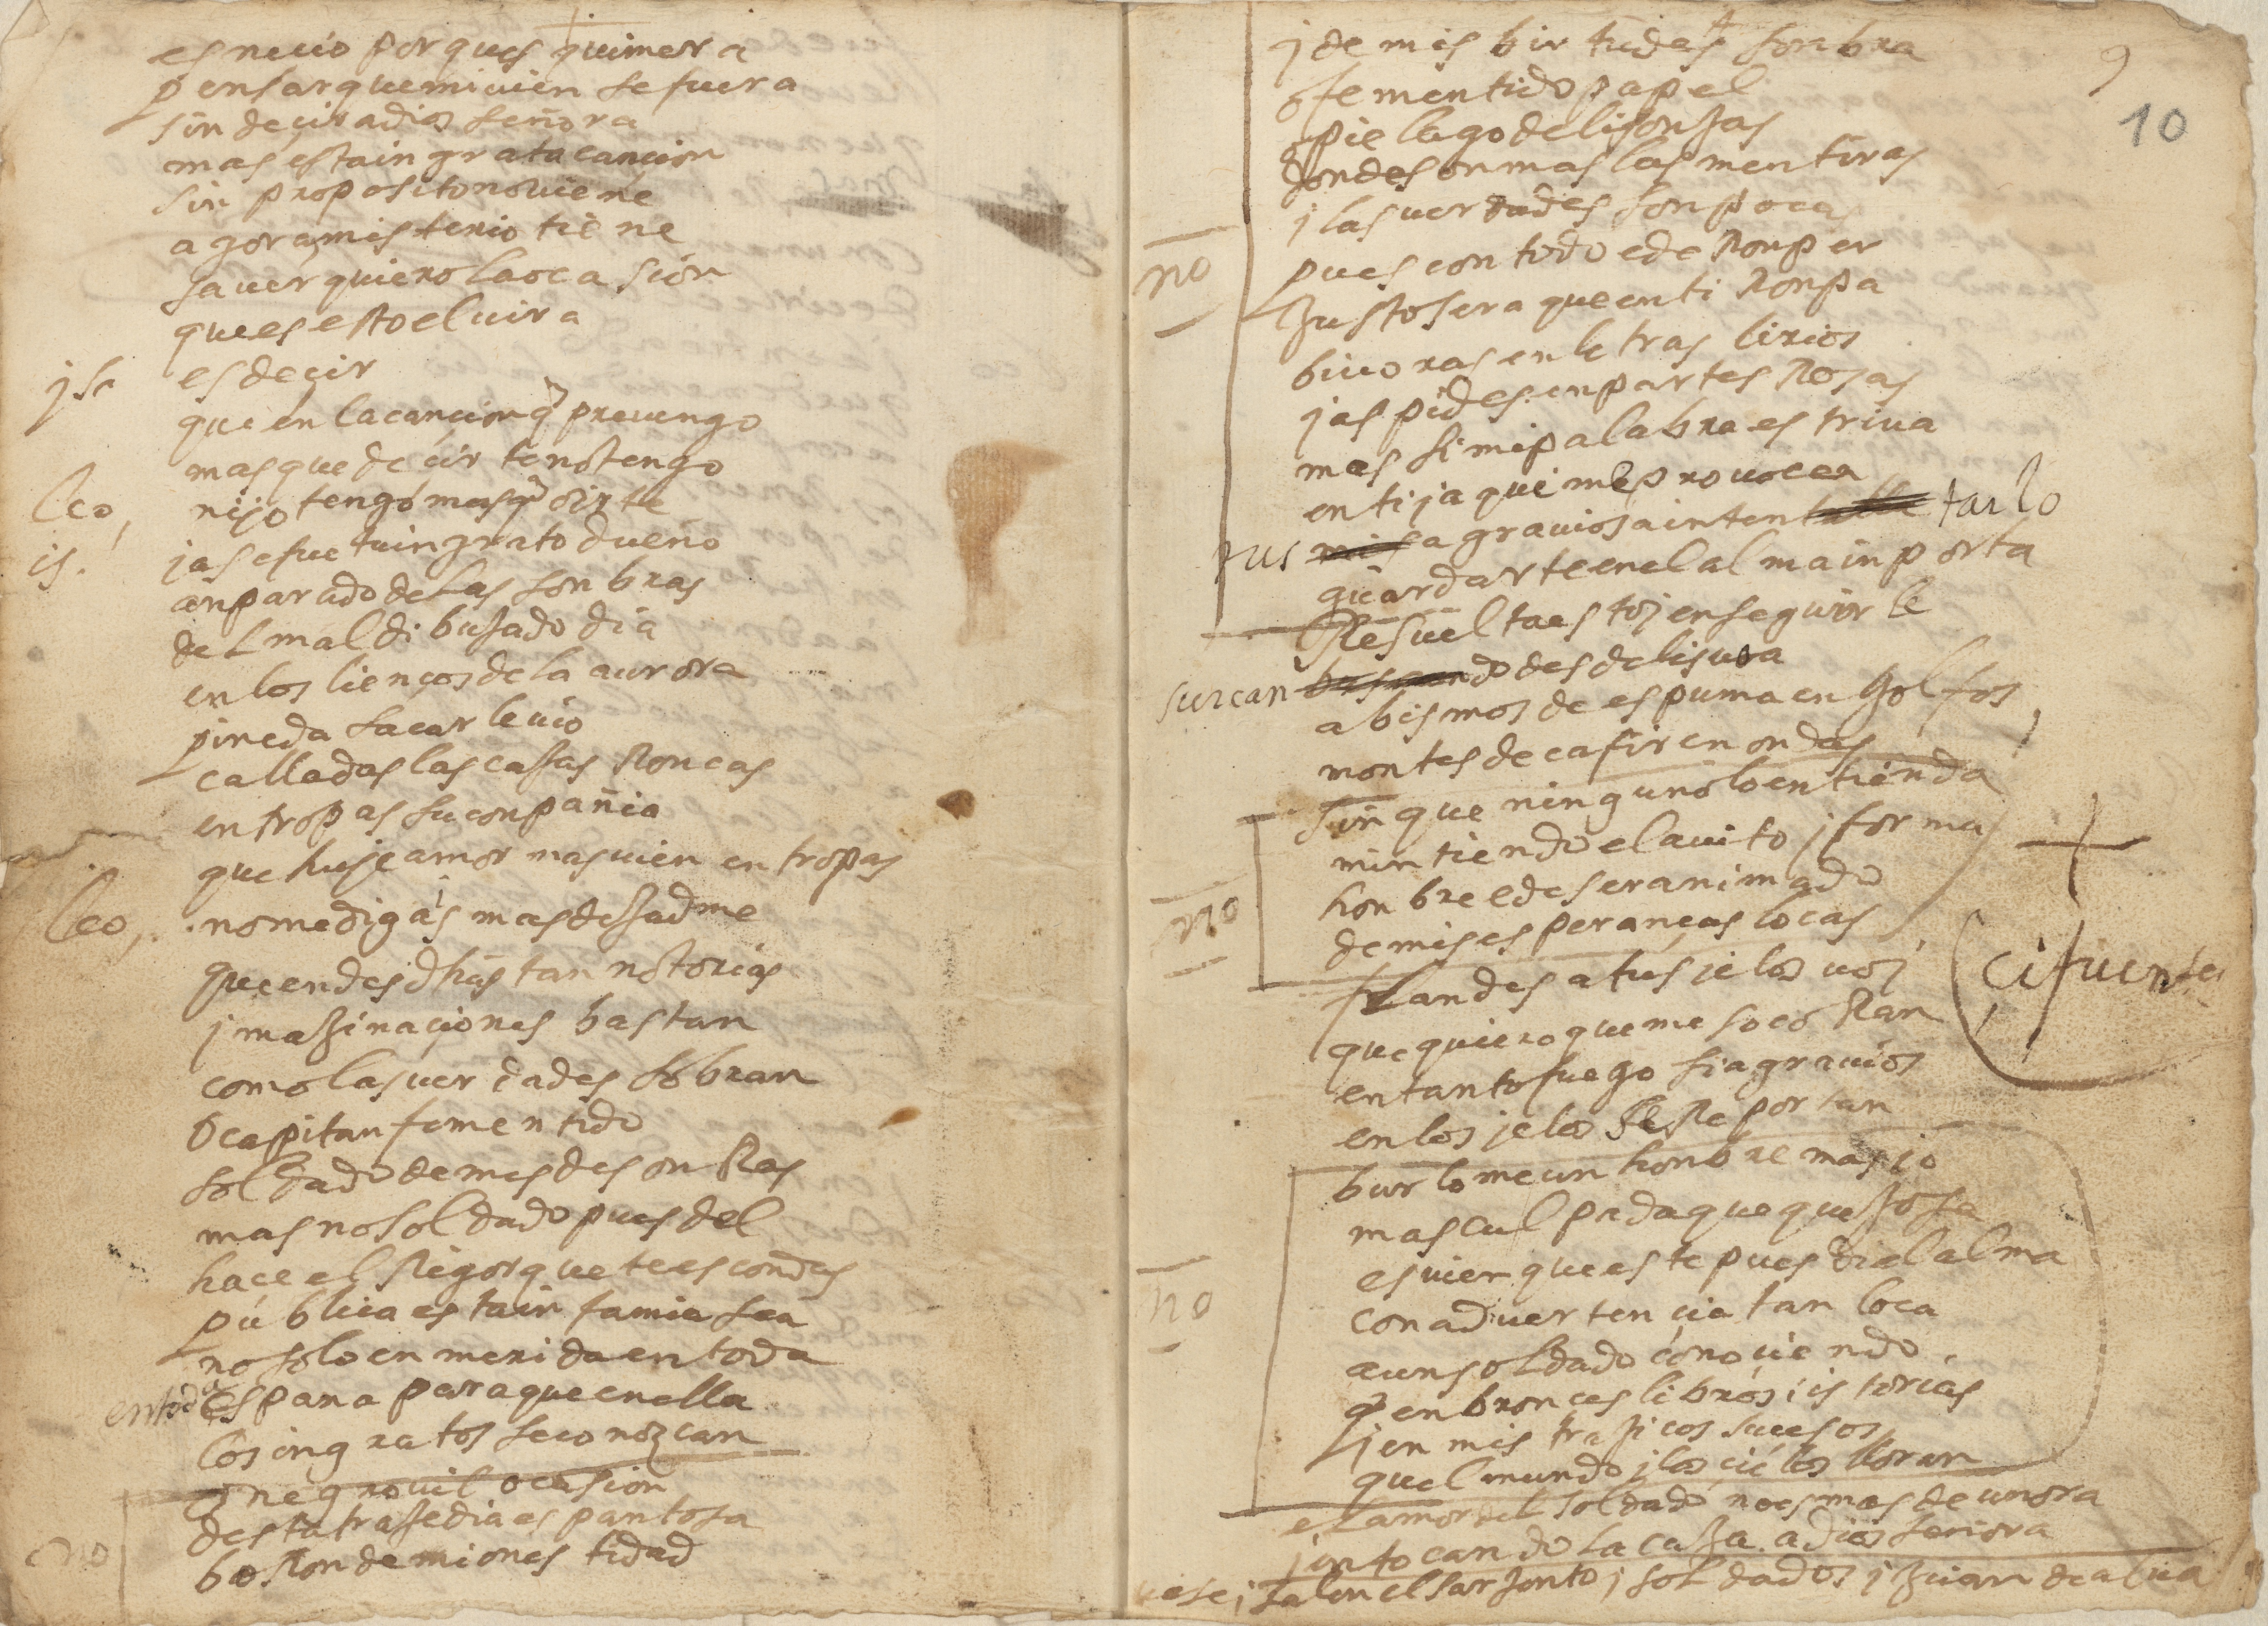 es necio porques quimera
pensar que mi vien se fuera
sin deçir adios señora
mas esta ingrata cancion
sin proposito no viene
agora misterio tiene
saver quiero la ocasion
que es esto elvira
ysa es deçir
que en la cancion q prevengo
mas que decir te no tengo
leo, ni yo tengo mas q oirte
is. ya se fue tu ingrato dueño
anparado de las sonbras
del mal dibujado dia
en los liencos de la aurora
pineda sacar le vio
calladas las cajas Roncas
en tropas su conpañia
que huye amor mas vien en tropas
leo, no me digas mas dejadme
que en desdhas tan notorias
ymajinaçiones bastan
como las verdades sobran
O capitan fementido
soldado de mis desonRas
mas no soldado pues del
hace el Rigor que te escondas
publica esta infamia sea
no solo en merida en toda
en toda españa para que en ella
los ingratos se conozcan
O negro vil ocasion
desta trajedia espantosa
no boRon de mi onestidad
9
10
y de mis birtudes sonbra
o fementido papel
pielago de lisonjas
donde son mas las mentiras
y las verdades son pocas
no pues con todo e de Ronper
justo sera que en ti Ronpa
bivoras en letras lirios
jaspides en partes Rosas
mas si mi palabra estriva
en ti ya qui me provoca
tus mis agravios a intentalle tarlo
guardarte en el alma inporta
Resuelta estoy en seguirle
surcan buscando desde lisvoa
abismos de espuma en golfos
montes de cafir en ondas
sin que ninguno lo entienda
mintiendo el avito y forma
no honbre e de ser animado
de mis esperanças locas
flandes a tus yelos voy
cifuentes
que quiero que me socoRan
en tanto fuego si agravios
en los yelos se Reportan
burlome un honbre mas yo
mas culpada que quejosa
es vien que este pues di el alma
no con advertencia tan loca
a un soldado conociendo
q en bronces libros istorias
y en mis trajicos sucesos
quel mundo y los cielos lloran
el amor del soldado no es mas de un ora
y en tocando la caja adios señora
vase y salen el sarjento y soldados y juan de alva